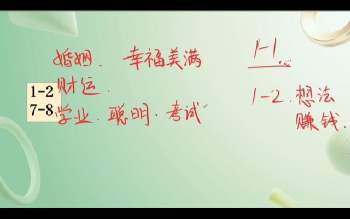 婚姻. 幸福美满
财运.
学业. 聪明. 考试
1-2
7-8
1-1...
1-2. 想法
赚钱.